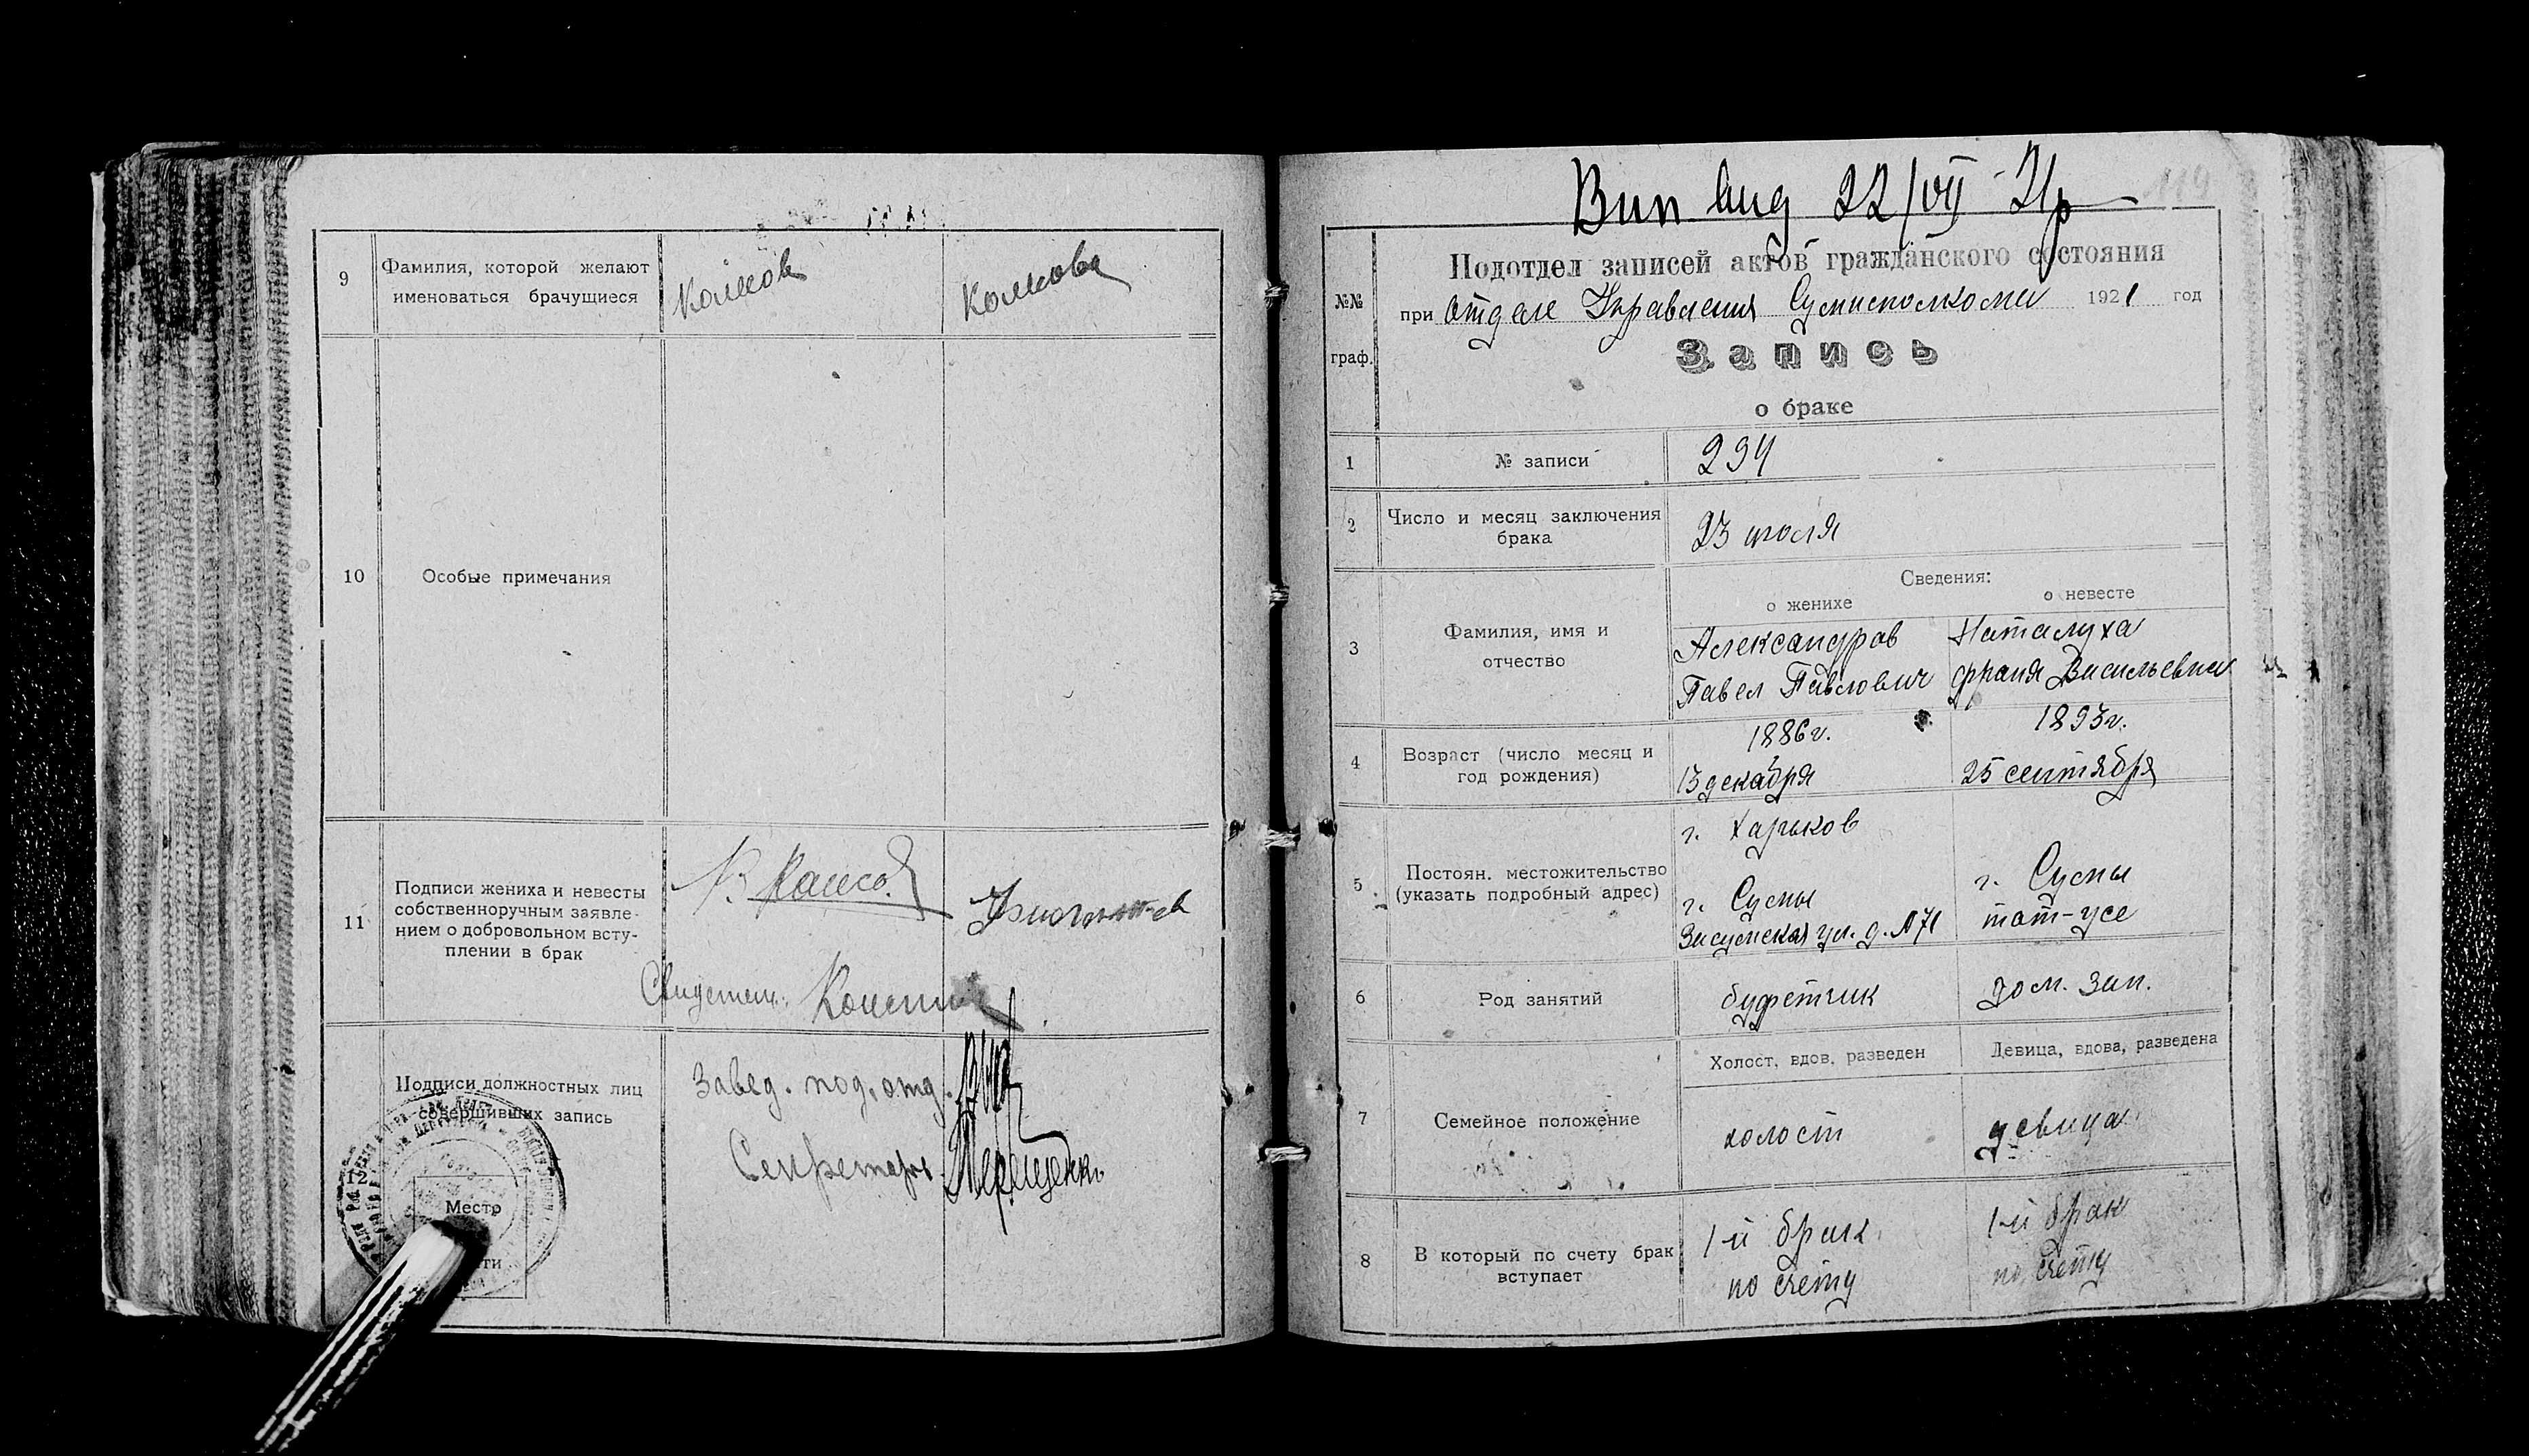 9
Фамилия, которой желают
именоваться брачущиеся
10
Особые примечания
11
Подписи жениха и невесты
собственноручным заявле-
нием о добровольном всту-
плении в брак
Свидетель:
12
Подписи должностных лиц
совершивших запись
Завед. под. отд.
Секретарь
Место
119
22/VII 21р
№№
граф.
Подотдел записей актов гражданского состояния
при отделе Управления Сумисполкома 1921 год
Запись
о браке
1
№ записи
294
2
Число и месяц заключения
брака
23 июля
Сведения:
о женихе
о невесте
3
Фамилия, имя и
отчество
Александров
Павел Павлович
Наталуха
Васильевна
4
Возраст (число месяц и
год рождения)
1886г.
13 декабря
1893г.
25 сентября
5
Постоян. местожительство
(указать подробный адрес)
г. Харьков
г. Сумы
Засумская ул. д. №71
г. Сумы
там-же
6
Род занятий
буфетчик
дом. зан.
7
Семейное положение
Холост, вдов, разведен
Девица, вдова, разведена
холост
девица
8
В который по счету брак
вступает
1-й брак
по счету
1-й брак
по счету